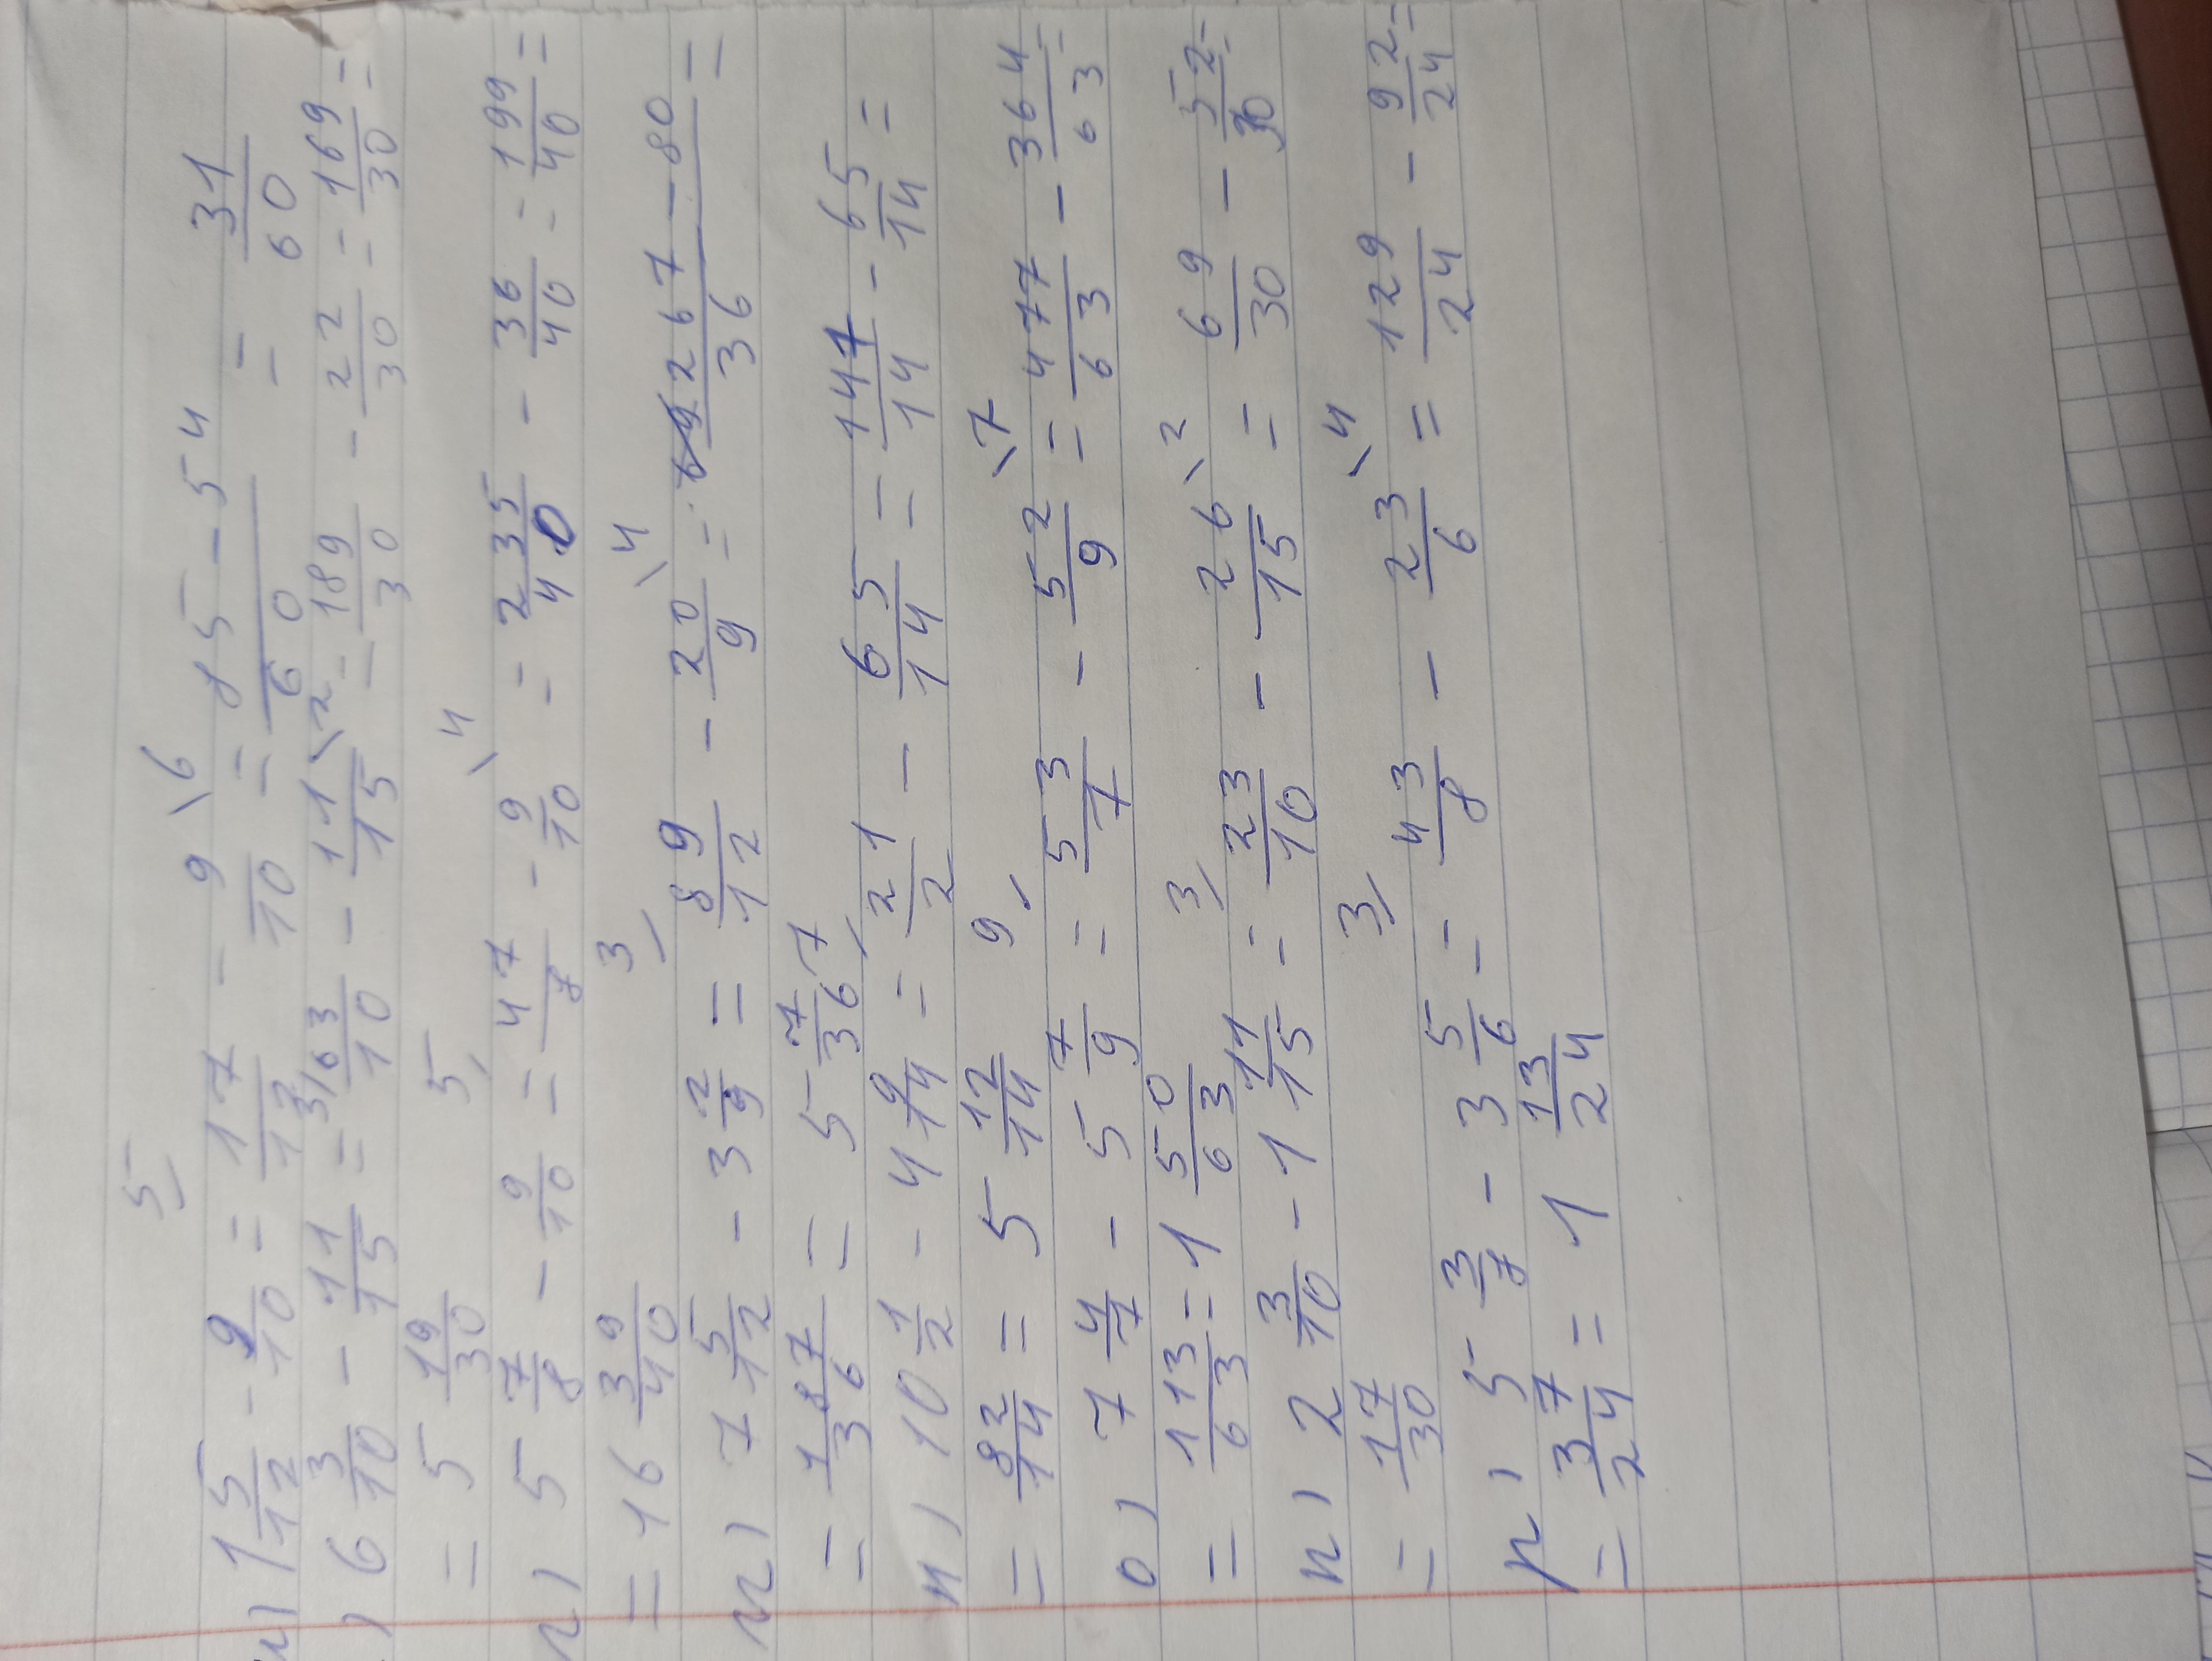 и) 1 5/12 - 9/10 = 5/ 17/12 - 9/10 \6 = 85-54/60 = 31/60
) 6 3/10 - 11/15 = 3/ 63/10 - 11/15 \2 = 189/30 - 22/30 = 169/30 =
= 5 19/30
л) 5 7/8 - 9/10 = 5/ 47/8 - 9/10 \4 = 235/40 - 36/40 = 199/40 =
= 16 39/40
м) 7 5/12 - 3 2/9 = 3/ 89/12 - 20/9 \4 = 267-80/36 =
= 187/36 = 5 7/36
н) 10 1/2 - 4 9/14 = 7/ 21/2 - 65/14 = 147/14 - 65/14 =
= 82/14 = 5 12/14
о) 7 4/7 - 5 7/9 = 9/ 53/7 - 52/9 \7 = 477/63 - 364/63 =
= 113/63 = 1 50/63
п) 2 3/10 - 1 11/15 = 3/ 23/10 - 26/15 \2 = 69/30 - 52/30 =
= 17/30
р) 5 3/8 - 3 5/6 = 3/ 43/8 - 23/6 \4 = 129/24 - 92/24 =
= 37/24 = 1 13/24